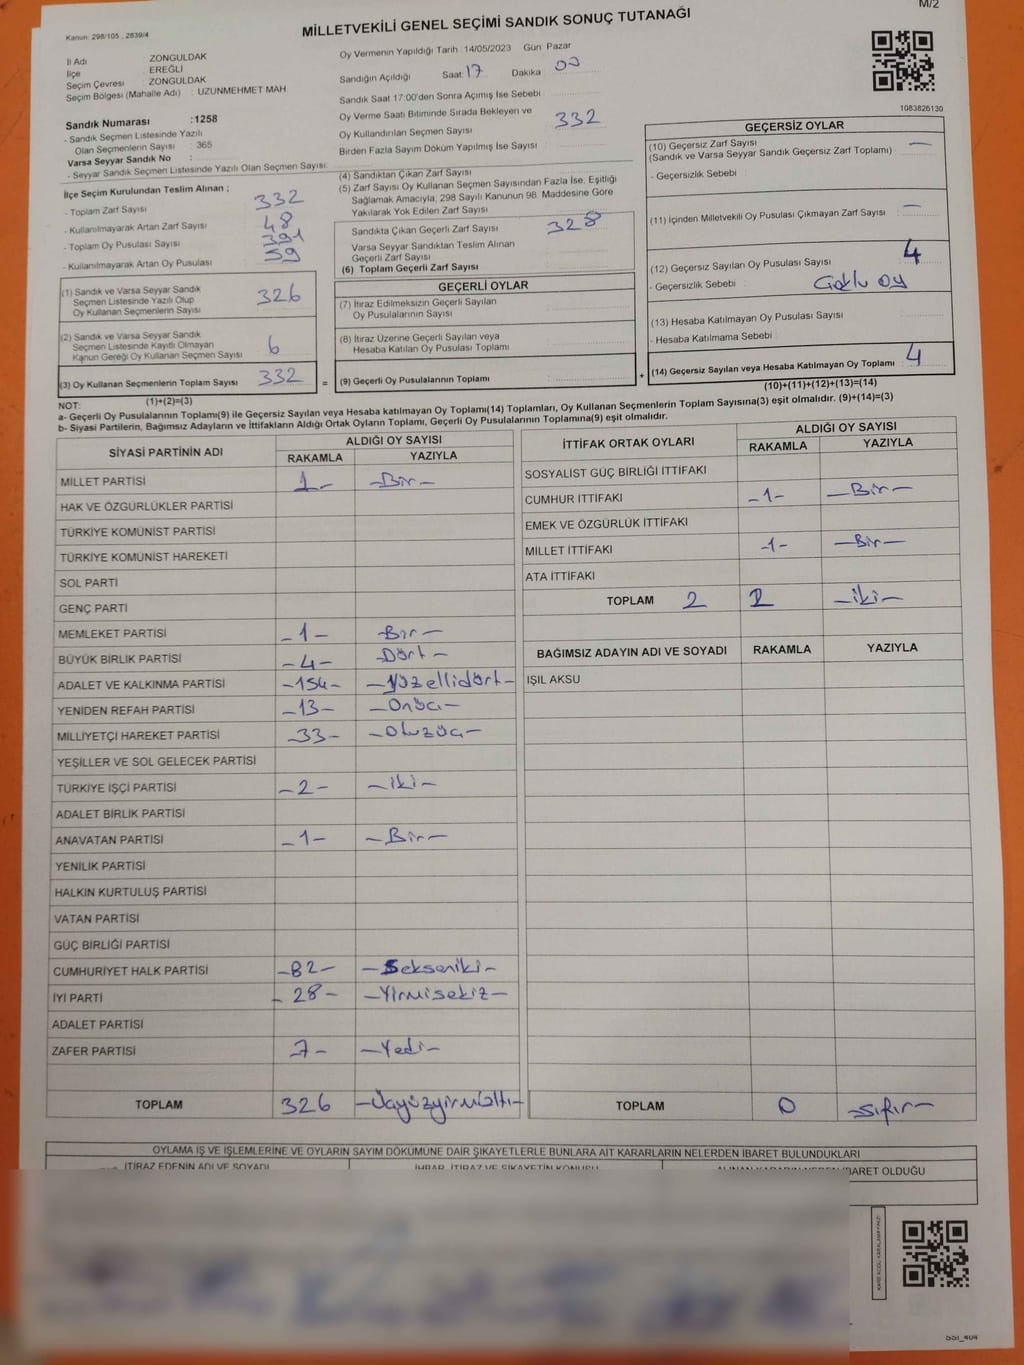 M/2
Kanun: 298/105 , 2839/4
MİLLETVEKİLİ GENEL SEÇİMİ SANDIK SONUÇ TUTANAĞI
İl Adı : ZONGULDAK
İlçe : EREĞLİ
Seçim Çevresi : ZONGULDAK
Seçim Bölgesi (Mahalle Adı) : UZUNMEHMET MAH
Sandık Numarası : 1258
- Sandık Seçmen Listesinde Yazılı
Olan Seçmenlerin Sayısı : 365
Varsa Seyyar Sandık No :
- Seyyar Sandık Seçmen Listesinde Yazılı Olan Seçmen Sayısı:
Oy Vermenin Yapıldığı Tarih : 14/05/2023 Gün: Pazar
Sandığın Açıldığı Saat: 17 Dakika 00
Sandık Saat 17:00'den Sonra Açımış İse Sebebi :
Oy Verme Saati Bitiminde Sırada Bekleyen ve
Oy Kullandırılan Seçmen Sayısı : 332
Birden Fazla Sayım Döküm Yapılmış İse Sayısı :
1083826130
İlçe Seçim Kurulundan Teslim Alınan ;
- Toplam Zarf Sayısı 332
- Kullanılmayarak Artan Zarf Sayısı 48
- Toplam Oy Pusulası Sayısı 391
- Kullanılmayarak Artan Oy Pusulası 59
(1) Sandık ve Varsa Seyyar Sandık
Seçmen Listesinde Yazılı Olup
Oy Kullanan Seçmenlerin Sayısı 326
(2) Sandık ve Varsa Seyyar Sandık
Seçmen Listesinde Kayıtlı Olmayan
Kanun Gereği Oy Kullanan Seçmen Sayısı 6
(3) Oy Kullanan Seçmenlerin Toplam Sayısı 332 =
(1)+(2)=(3)
(4) Sandıktan Çıkan Zarf Sayısı
(5) Zarf Sayısı Oy Kullanan Seçmen Sayısından Fazla İse, Eşitliği
Sağlamak Amacıyla, 298 Sayılı Kanunun 98. Maddesine Göre
Yakılarak Yok Edilen Zarf Sayısı
Sandıkta Çıkan Geçerli Zarf Sayısı 328
Varsa Seyyar Sandıktan Teslim Alınan
Geçerli Zarf Sayısı
(6) Toplam Geçerli Zarf Sayısı
GEÇERLİ OYLAR
(7) İtiraz Edilmeksizin Geçerli Sayılan
Oy Pusulalarının Sayısı
(8) İtiraz Üzerine Geçerli Sayılan veya
Hesaba Katılan Oy Pusulası Toplamı
(9) Geçerli Oy Pusulalarının Toplamı +
GEÇERSİZ OYLAR
(10) Geçersiz Zarf Sayısı —
(Sandık ve Varsa Seyyar Sandık Geçersiz Zarf Toplamı)
- Geçersizlik Sebebi :
(11) İçinden Milletvekili Oy Pusulası Çıkmayan Zarf Sayısı —
(12) Geçersiz Sayılan Oy Pusulası Sayısı 4
- Geçersizlik Sebebi : Çoklu oy
(13) Hesaba Katılmayan Oy Pusulası Sayısı
- Hesaba Katılmama Sebebi :
(14) Geçersiz Sayılan veya Hesaba Katılmayan Oy Toplamı 4
(10)+(11)+(12)+(13)=(14)
NOT:
a- Geçerli Oy Pusulalarının Toplamı(9) ile Geçersiz Sayılan veya Hesaba katılmayan Oy Toplamı(14) Toplamları, Oy Kullanan Seçmenlerin Toplam Sayısına(3) eşit olmalıdır. (9)+(14)=(3)
b- Siyasi Partilerin, Bağımsız Adayların ve İttifakların Aldığı Ortak Oyların Toplamı, Geçerli Oy Pusulalarının Toplamına(9) eşit olmalıdır.
SİYASİ PARTİNİN ADI ALDIĞI OY SAYISI
RAKAMLA YAZIYLA
MİLLET PARTİSİ 1- -Bir-
HAK VE ÖZGÜRLÜKLER PARTİSİ
TÜRKİYE KOMÜNİST PARTİSİ
TÜRKİYE KOMÜNİST HAREKETİ
SOL PARTİ
GENÇ PARTİ
MEMLEKET PARTİSİ -1- -Bir-
BÜYÜK BİRLİK PARTİSİ -4- -Dört-
ADALET VE KALKINMA PARTİSİ -154- -Yüzellidört-
YENİDEN REFAH PARTİSİ -13- -Onüç-
MİLLİYETÇİ HAREKET PARTİSİ -33- -Otuzüç-
YEŞİLLER VE SOL GELECEK PARTİSİ
TÜRKİYE İŞÇİ PARTİSİ -2- -İki-
ADALET BİRLİK PARTİSİ
ANAVATAN PARTİSİ -1- -Bir-
YENİLİK PARTİSİ
HALKIN KURTULUŞ PARTİSİ
VATAN PARTİSİ
GÜÇ BİRLİĞİ PARTİSİ
CUMHURİYET HALK PARTİSİ -82- -Sekseniki-
İYİ PARTİ -28- -Yirmisekiz-
ADALET PARTİSİ
ZAFER PARTİSİ 7- -Yedi-
TOPLAM 326 -Üçyüzyirmialtı-
İTTİFAK ORTAK OYLARI ALDIĞI OY SAYISI
RAKAMLA YAZIYLA
SOSYALİST GÜÇ BİRLİĞİ İTTİFAKI
CUMHUR İTTİFAKI -1- -Bir-
EMEK VE ÖZGÜRLÜK İTTİFAKI
MİLLET İTTİFAKI -1- -Bir-
ATA İTTİFAKI
TOPLAM 2 2 -iki-
BAĞIMSIZ ADAYIN ADI VE SOYADI RAKAMLA YAZIYLA
IŞIL AKSU
TOPLAM 0 -sıfır-
OYLAMA İŞ VE İŞLEMLERİNE VE OYLARIN SAYIM DÖKÜMÜNE DAİR ŞİKAYETLERLE BUNLARA AİT KARARLARIN NELERDEN İBARET BULUNDUKLARI
İTİRAZ EDENİN ADI VE SOYADI
İHBAR, İTİRAZ VE ŞİKAYETİN KONUSU
İBARET OLDUĞU
SSİ_404